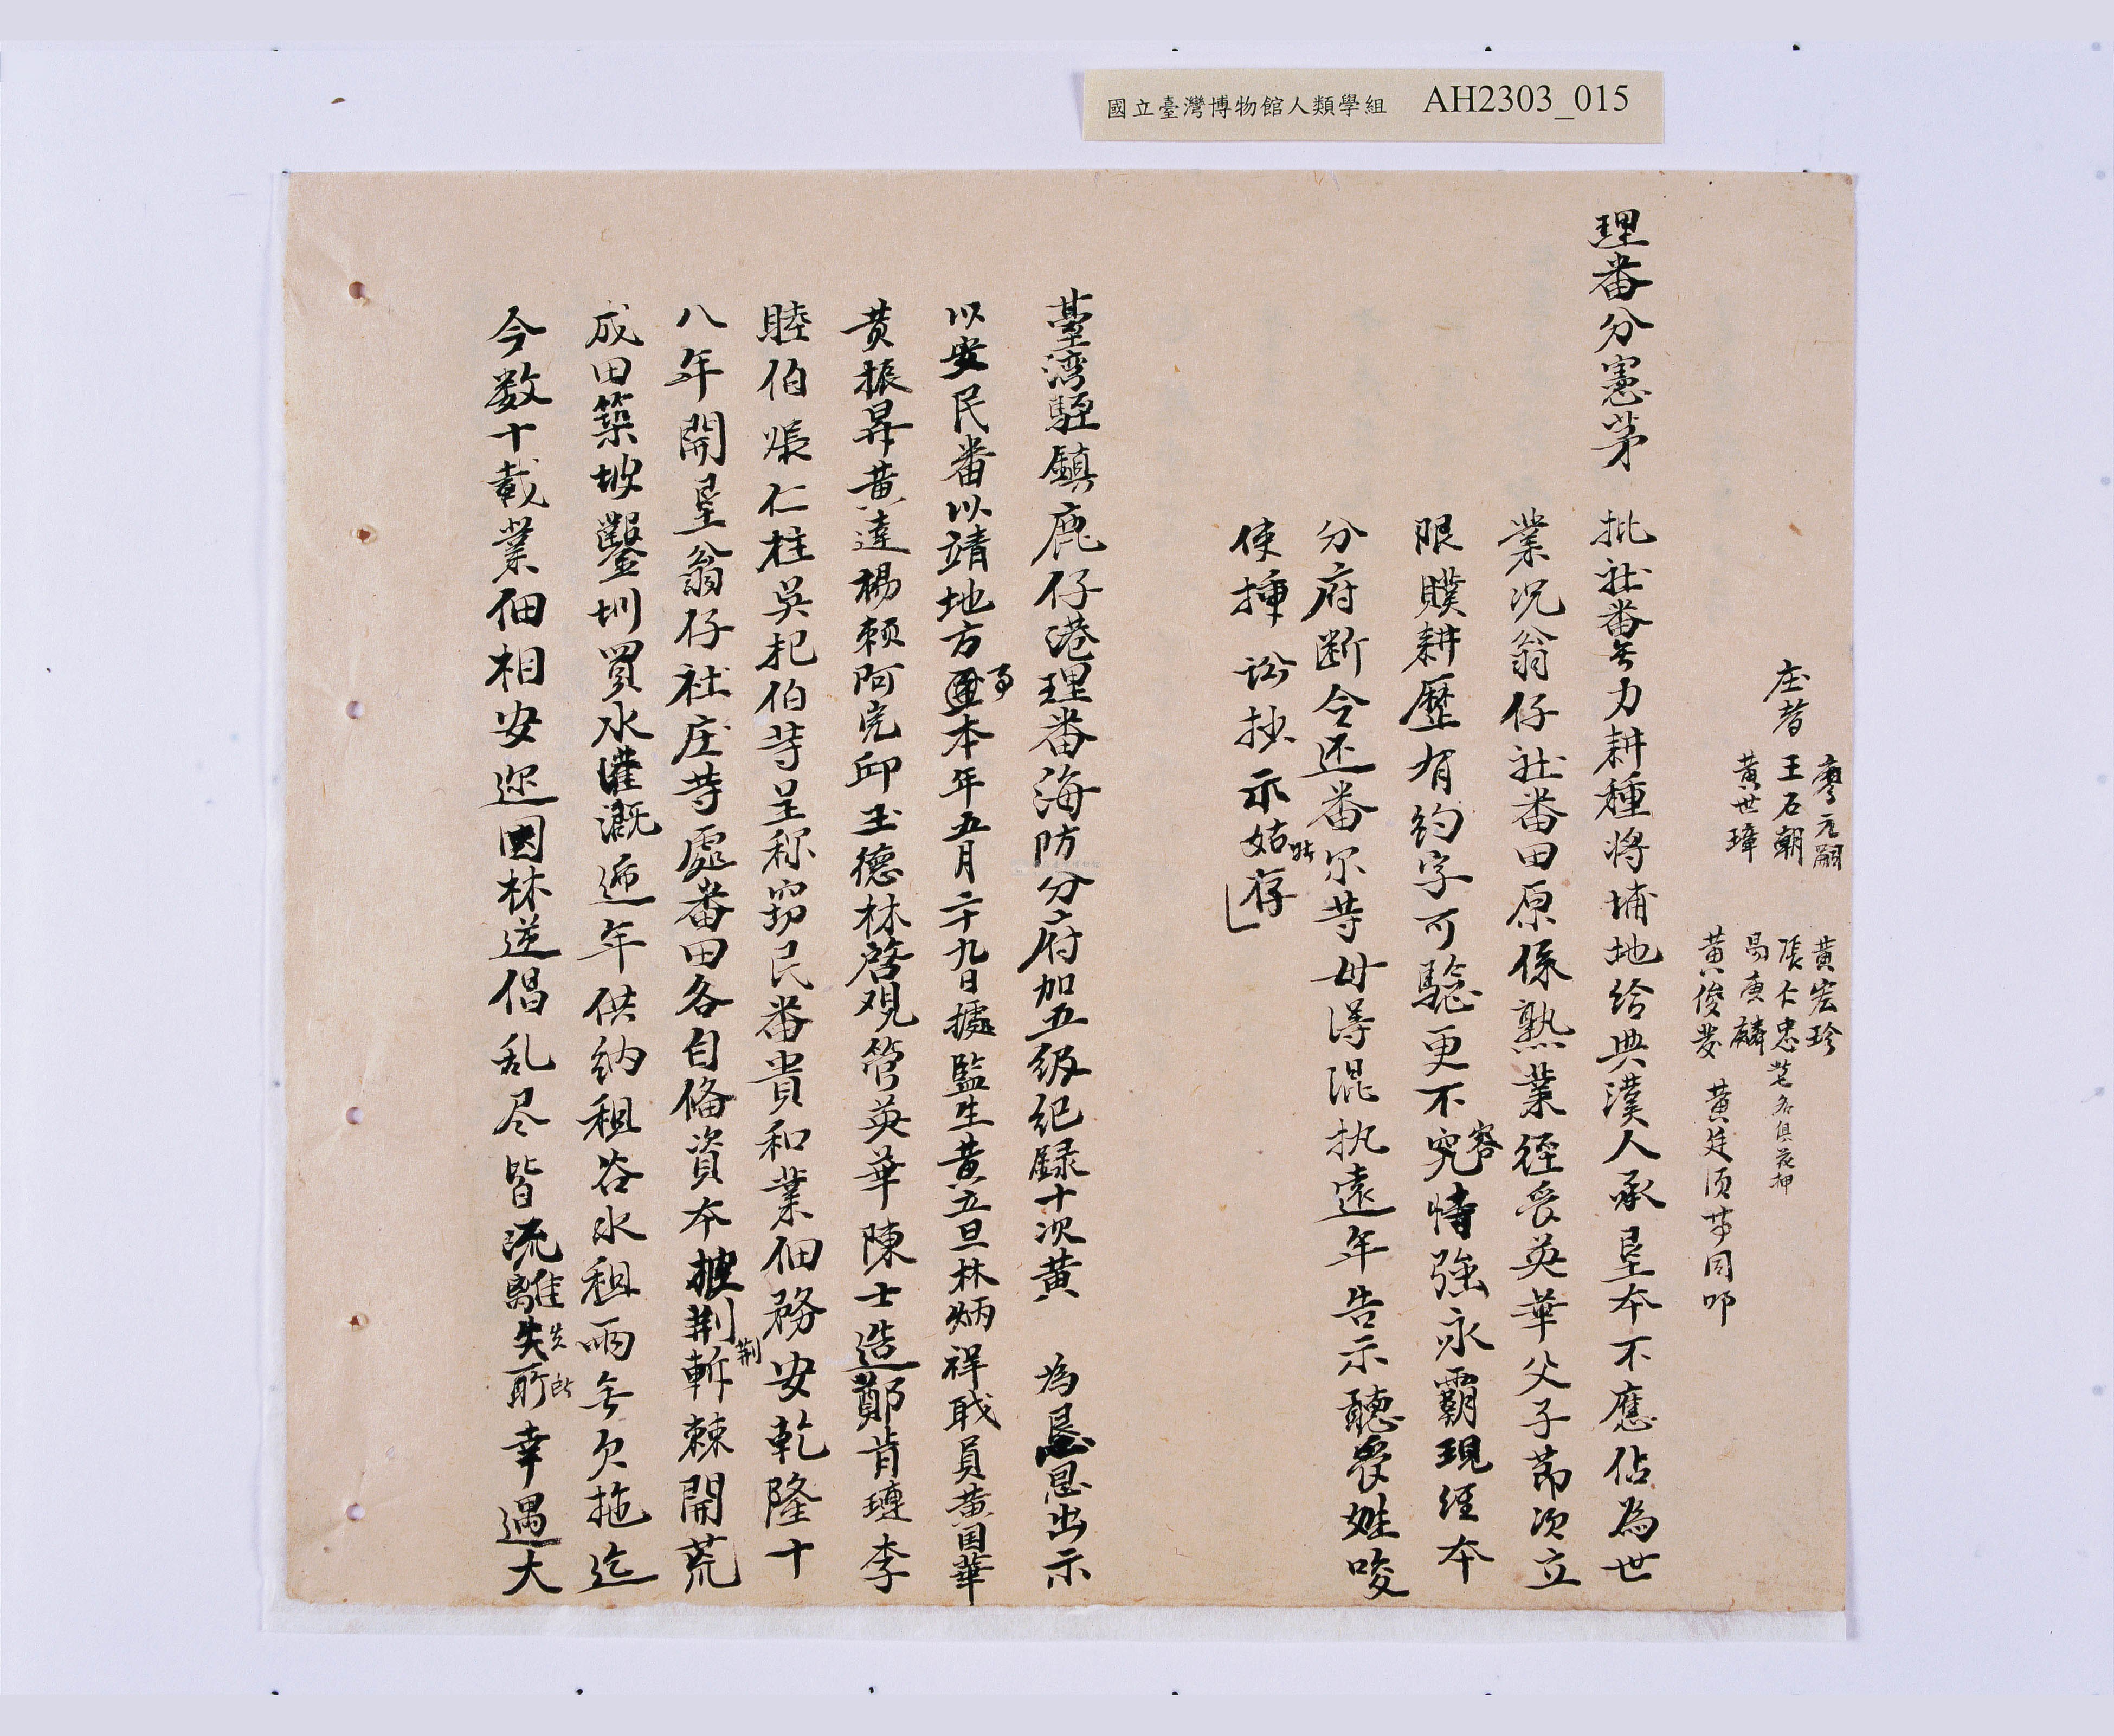 國立臺灣博物館人類學組 AH2303_015
庄耆
廖元嗣
王石朝
黃世璋
黃宏珍
張仁忠
易庚麟
黃俊發
等各俱花押
黃廷須等同叩
理番分憲茅
批社番無力耕種將埔地給典漢人承垦本不應佔為世
業况翁仔社番田原係熟業徑受英華父子節次立
限贌耕歷有約字可驗更不容究恃強永霸現經本
分府断令还番尔等毋得混执遠年告示聽受姓唆
使揷訟抄示姑貼存
臺湾駐鎮鹿仔港理番海防分府加五級紀録十次黄 為恳恩出示
以安民番以靖地方事本年五月二十九日據監生黃五旦林炳祥戢員黃国華
黄振昇黃達楊頼阿完邱玉德林啓观管英華陳士造鄭肯璉李
睦伯張仁柱吳杞伯等呈称窃民番貴和業佃務安乾隆十
八年開垦翁仔社庄等處番田各自俻資本披荆斬棘開荒
荆
成田築坡鑿圳買水灌溉遞年供納租谷水租兩無欠拖迄
今数十載業佃相安迩因林逆倡乱尽皆流離失所幸遇大
失所